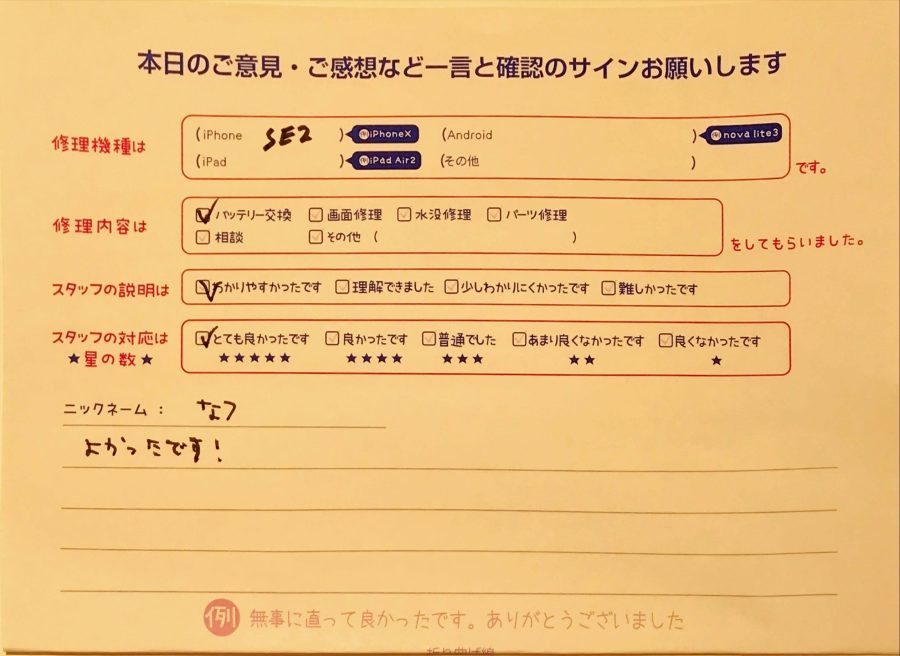 本日のご意見・ご感想など一言と確認のサインお願いします
修理機種は
(iPhone SE2 ) 例iPhoneX (Android ) 例nova lite3
(iPad ) 例iPad Air2 (その他 )
です。
修理内容は
バッテリー交換 画面修理 水没修理 パーツ修理
相談 その他 ( )
をしてもらいました。
スタッフの説明は
わかりやすかったです 理解できました 少しわかりにくかったです 難しかったです
スタッフの対応は
★星の数★
とても良かったです 良かったです 普通でした あまり良くなかったです 良くなかったです
★★★★★ ★★★★ ★★★ ★★ ★
ニックネーム：
よかったです！
例 無事に直って良かったです。ありがとうございました